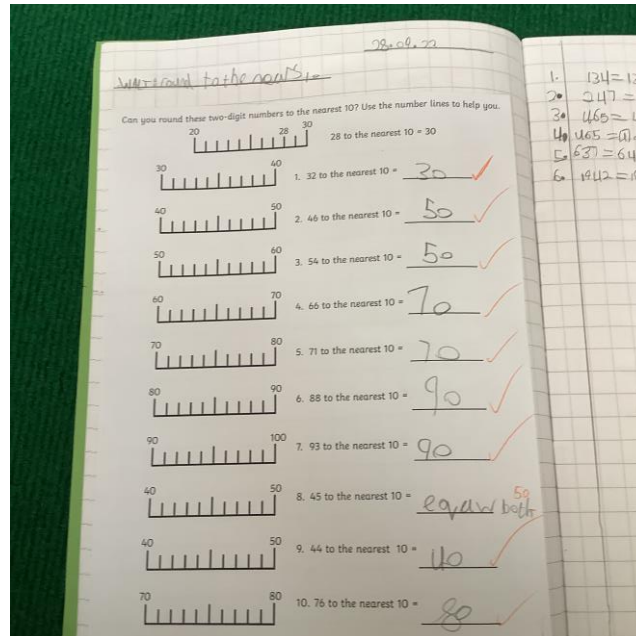 28.09.22
round to the
Can you round these two-digit numbers to the nearest 10? Use the number lines to help you.
20 28 30
28 to the nearest 10 = 30
30 40
1. 32 to the nearest 10 = 30
40 50
2. 46 to the nearest 10 = 50
50 60
3. 54 to the nearest 10 = 50
60 70
4. 66 to the nearest 10 = 70
70 80
5. 71 to the nearest 10 = 70
80 90
6. 88 to the nearest 10 = 90
90 100
7. 93 to the nearest 10 = 90
40 50
8. 45 to the nearest 10 = equaw both 50
40 50
9. 44 to the nearest 10 = 40
70 80
10. 76 to the nearest 10 = 80
1. 134=
2. 247=
3. 465=
4. 465=
5. 637=64
6. 1942=